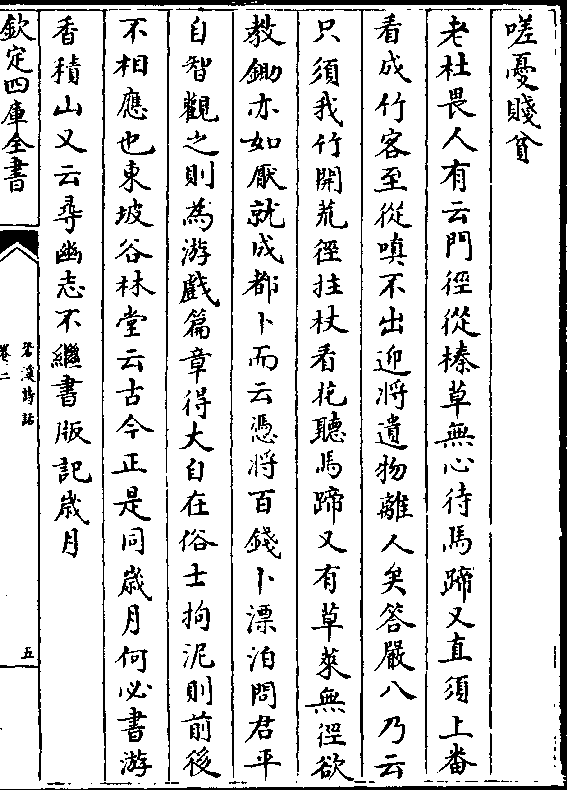 嗟憂賤貧
老杜畏人有云門徑從榛草無心待馬蹄又直須上番
看成竹客至從嗔不出迎將遺物離人矣答嚴八乃云
只須我竹開荒徑拄杖看花聽馬蹄又有草萊無徑欲
教鋤亦如厭就成都卜而云憑將百錢卜漂泊問君平
自智觀之則為游戲篇章得大自在俗士拘泥則前後
不相應也東坡谷林堂云古今正是同歲月何必書游
香積山又云尋幽志不繼書版記歲月
欽定四庫全書
䂬溪詩話
卷二
五